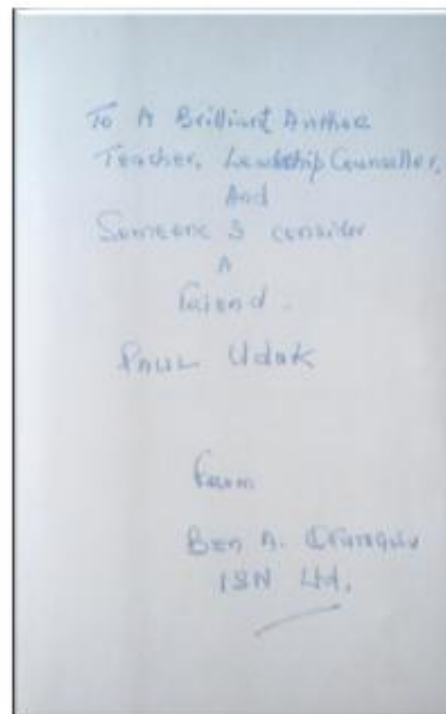 To A Brilliant Author
Teacher, Leadship Counseller,
And
Someone I consider
A
Friend.
PAUL Udok
From
Ben A.
ISN Ltd.